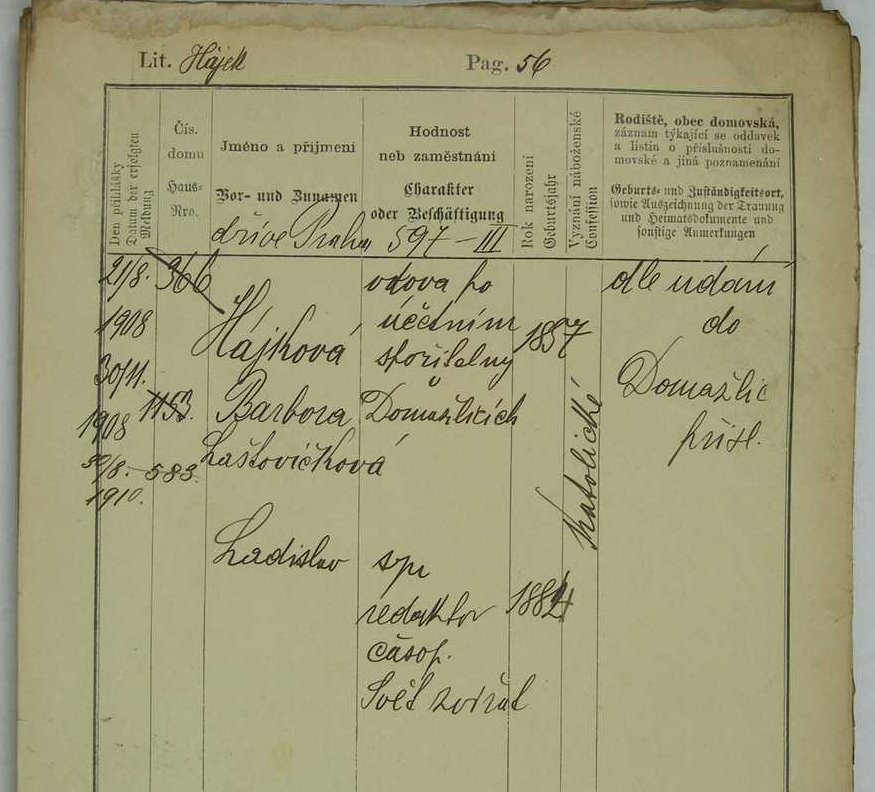 Lit. Hájek Pag. 56
Den přihlášky
Datum der erfolgten
Meldung
Čís.
domu
Haus-
Nro.
Jméno a přijmení
Vor- und Zunamen
Hodnost
neb zaměstnání
Charakter
oder Beschäftigung
Rok narození
Geburtsjahr
Vyznání náboženské
Confession
Rodiště, obec domovská,
záznam týkající se oddavek
a listin o příslušnosti do-
movské a jiná poznamenání
Geburts- und Zuständigkeitsort,
sowie Auszeichnung der Trauung
und Heimatsdokumente und
sonstige Anmerkungen
dříve Praha 597-III
21/8. 366 vdova po dle udání
1908 účetním do
Hájková spořitelny 1857 Domažlic
30/11. přísl.
1908 1153. Barbora Domažlicích
30/8. - 583. Laštovičková
1910.
katolické
Ladislav
redaktor 1884
časop.
Svět zvířat